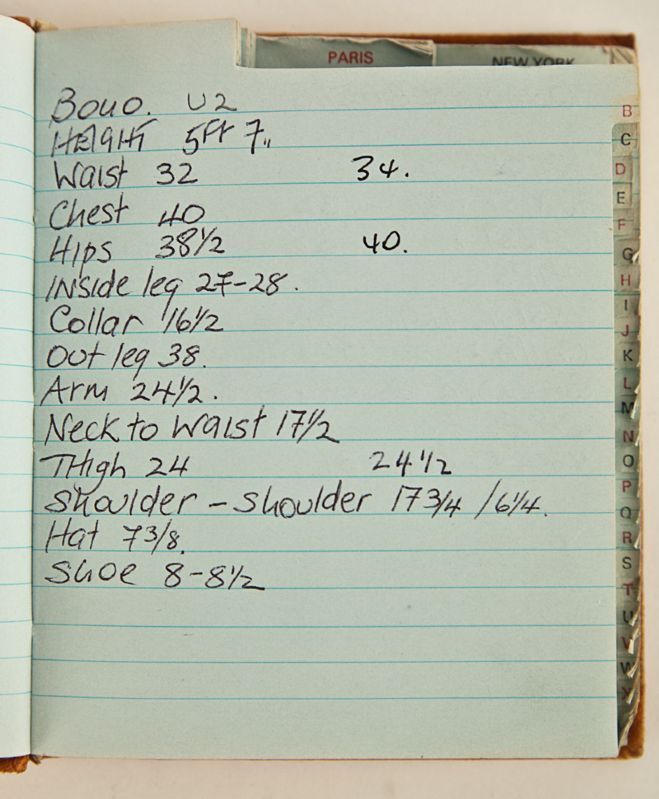 PARIS
NEW YORK
Bono. U2
HEIGHT 5FT 7"
Waist 32 34.
Chest 40
Hips 38 1/2 40.
INside leg 27-28.
Collar 16 1/2
Out leg 38.
Arm 24 1/2.
Neck to waist 17 1/2
THigh 24 24 1/2
Shoulder - Shoulder 17 3/4 / 6 1/4.
Hat 7 3/8.
Shoe 8-8 1/2
B
C
D
E
F
G
H
I
J
K
L
M
N
O
P
Q
R
S
T
U
V
W
X